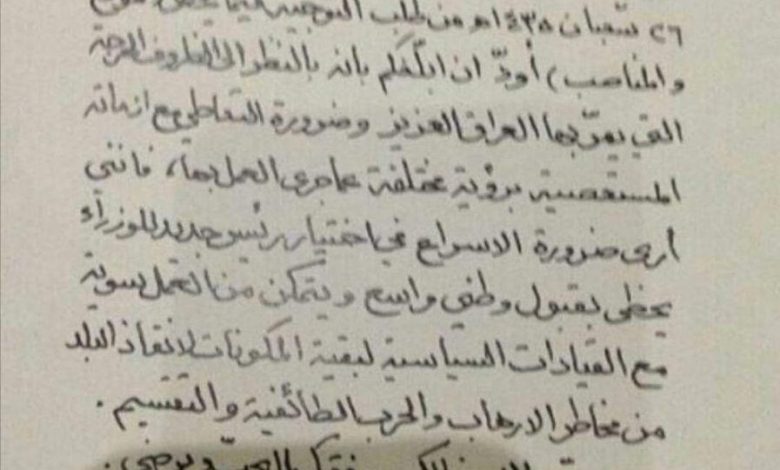 ٢٦ شعبان ١٤٣٥هـ من طلب التوجيه فيما يخص
والمناصب) أودّ ان ابلّغكم بانه بالنظر الى الظروف الحرجة
التي يمرّ بها العراق العزيز وضرورة التعاطي مع ازماته
المستعصية برؤية مختلفة عما جرى العمل بها، فانني
أرى ضرورة الاسراع في اختيار رئيس جديد للوزراء
يحظى بقبول وطني واسع ويتمكن من العمل سوية
مع القيادات السياسية لبقية المكونات لانقاذ البلد
من مخاطر الارهاب والحرب الطائفية والتقسيم.